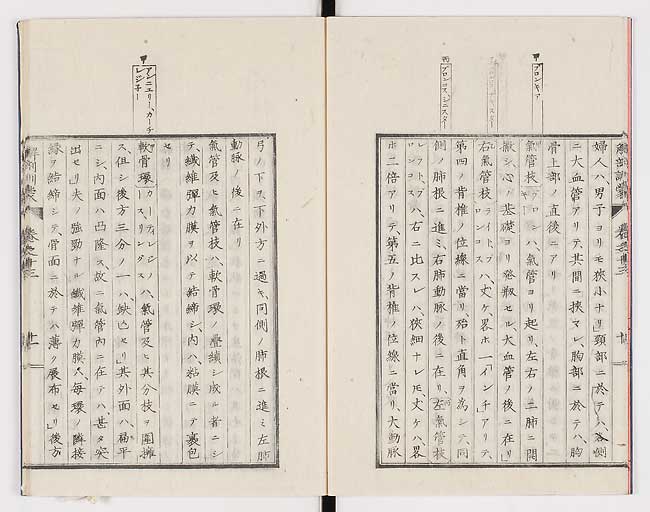 甲 ブロンキア
丙 ブロンコス、シニスター
婦人ハ男子ヨリモ狹小ナリ」頸部ニ於テハ、各側
ニ大血管アリテ其間ニ挾マレ、胸部ニ於テハ、胸
骨上部ノ直後ニアリ
氣管枝 ブロンハ、氣管ヨリ起リ、左右ノ二肺ニ開
散シ、心ノ基礎ヨリ發
セル大血管ノ後ニ在リ」
右氣管枝 ライト、ブロンコスハ、丈ケ、畧ホ一「インチ」アリテ、
第四ノ背椎ノ位線ニ當リ、殆ト直角ヲ為シテ、同
側ノ肺根ニ進ミ、右肺動脈ノ後ニ在リ、左氣管枝
レフト、ブハ、右ニ比スレハ、狹細ナレ𪜈、丈ケハ、畧
ホ二倍アリテ、第五ノ背椎ノ位線ニ當リ、大動脈
解剖訓蒙 卷之廿三 十
甲 アンニエリー、カーチレジ子ー
弓ノ下ヲ下外方ニ過キ、同側ノ肺根ニ進ミ左肺
動脈ノ後ニ在リ
氣管及ヒ氣管枝ハ、軟骨環ノ疊續シ成ル者ニシ
テ、纎維彈力膜ヲ以テ結締シ、内ハ、粘膜ニテ裹包
セリ
軟骨環 カーティレジノースリングスハ、氣管及ヒ其分枝ヲ圍擁
ス、但シ後方三分ノ一ハ、缺亡セリ」其外面ハ、扁平
ニシ、内面ハ凸隆ス、故ニ氣管内ニ在テハ甚タ突
出セリ」夫ノ強勁ナル纎維彈力膜ハ、毎環ノ隣接
緣ヲ結締シテ、骨面ニ於テハ薄ク展布セリ」後方
解剖訓蒙 卷之廿三 十一